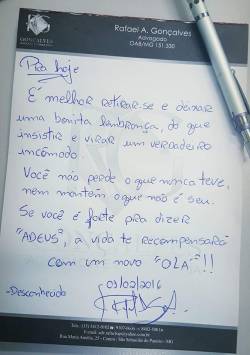 GONÇALVES
Rafael A. Gonçalves
Advogado
OAB/MG 151.330
Pra hoje
É melhor retirar-se e deixar
uma bonita lembrança, do que
insistir e virar um verdadeiro
incômodo.
Você não perde o que nunca teve,
nem mantém o que não é seu.
Se você é forte pra dizer
"ADEUS", a vida te recompensará
com um novo "OLÁ"!!
-Desconhecido
03/02/2016